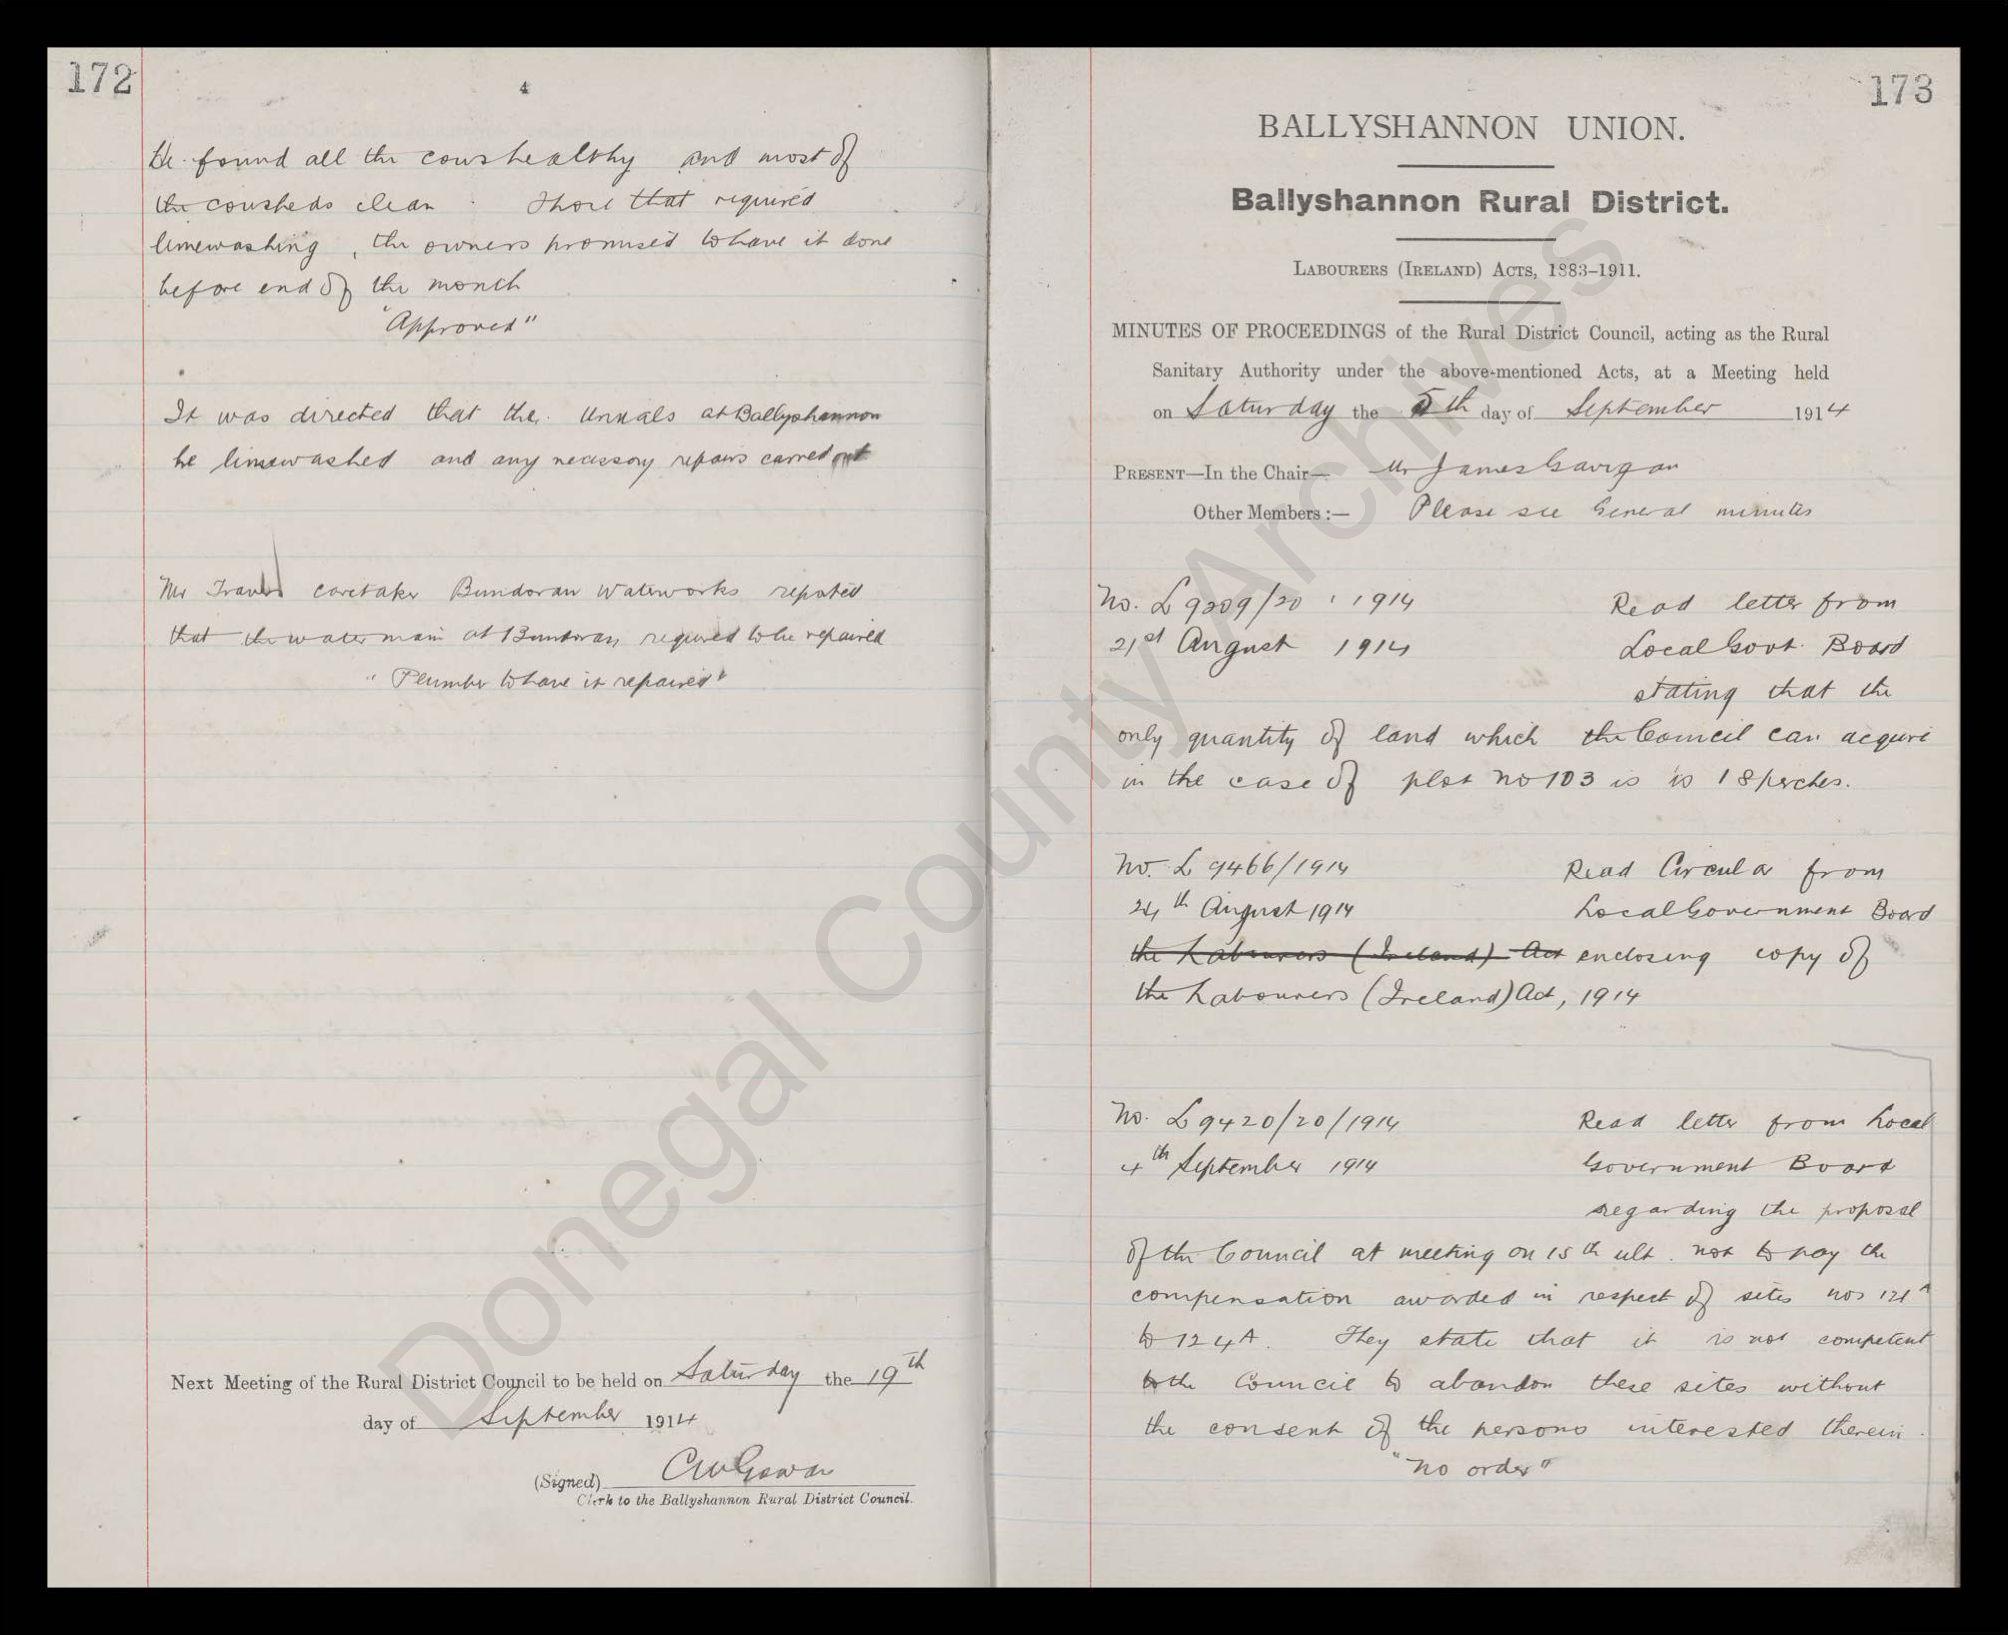 172
4
He found all the cows healthy and most of
the cowsheds clean. Those that required
limewashing, the owners promised to have it done
before end of the month
"Approved"
It was directed that the urinals at Ballyshannon
be limewashed and any necessary repairs carried out
Mr Travers caretaker Bundoran Waterworks reported
that the water main at Bundoran required to be repaired
"Plumber to have it repaired"
Next Meeting of the Rural District Council to be held on Saturday the 19th
day of September 1914
(Signed) C McGowan
Clerk to the Ballyshannon Rural District Council.
173
BALLYSHANNON UNION.
Ballyshannon Rural District.
LABOURERS (IRELAND) ACTS, 1883-1911.
MINUTES OF PROCEEDINGS of the Rural District Council, acting as the Rural
Sanitary Authority under the above-mentioned Acts, at a Meeting held
on Saturday the 5th day of September 1914
PRESENT—In the Chair— Mr James Gavigan
Other Members :— Please see General minutes
No. L 9209/20 . 1914 Read letter from
21st August 1914 Local Govt. Board
stating that the
only quantity of land which the Council can acquire
in the case of plot no 103 is is 18 perches.
No. L 9466/1914 Read Circular from
24th August 1914 Local Government Board
the Labourers (Ireland) Act enclosing copy of
the Labourers (Ireland) Act, 1914
No. L 9420/20/1914 Read letter from Local
4th September 1914 Government Board
regarding the proposal
of the Council at meeting on 15th ult. not to pay the
compensation awarded in respect of sites nos 121A
to 124A. They state that it is not competent
to the Council to abandon these sites without
the consent of the persons interested therein.
"No order"
Donegal County Archives